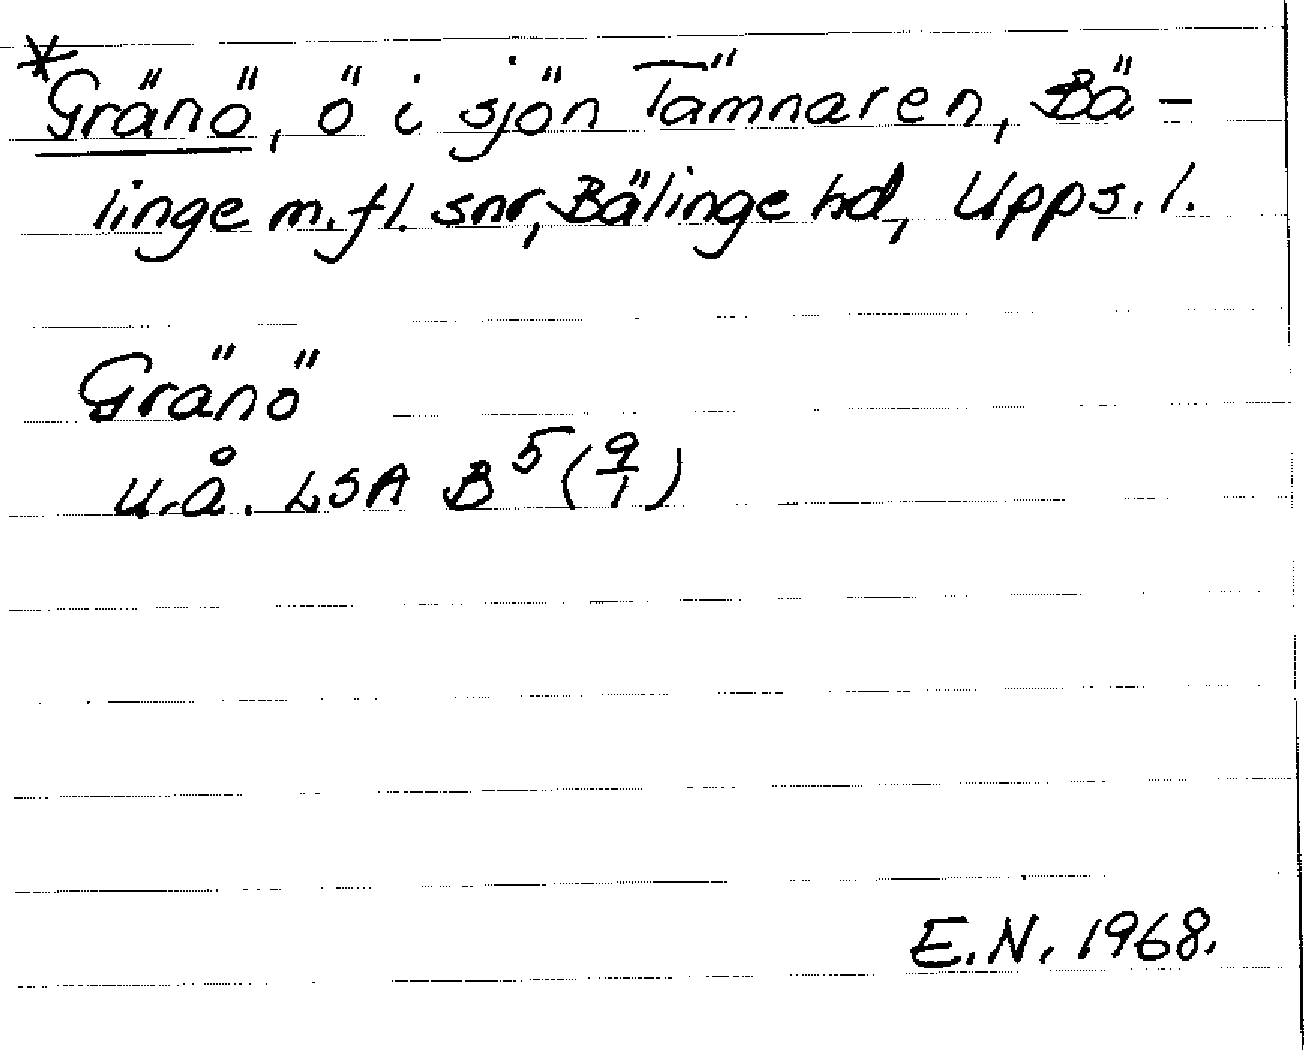 *Gränö, ö i sjön Tämnaren, Bä-
linge m.fl. snr, Bälinge hd, Upps. l.
Gränö
u.å. LSA B⁵ (9/1)
E.N. 1968.